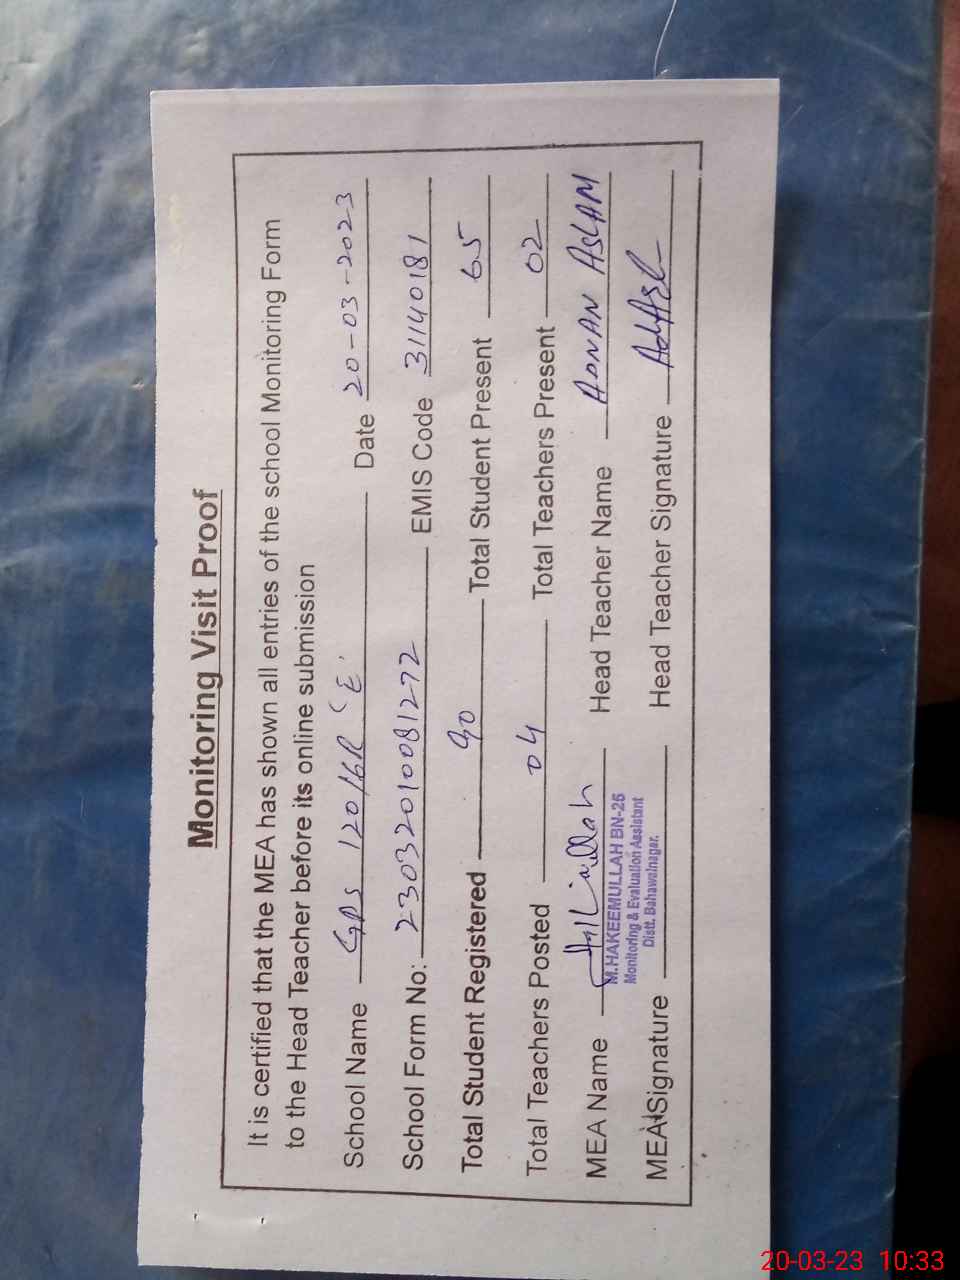 Monitoring Visit Proof
It is certified that the MEA has shown all entries of the school Monitoring Form
to the Head Teacher before its online submission
School Name GPS 120/6R 'E' Date 20-03-2023
School Form No: 23032010081272 EMIS Code 31140181
Total Student Registered 90 Total Student Present 65
Total Teachers Posted 04 Total Teachers Present 02
MEA Name Head Teacher Name ADNAN ASLAM
M.HAKEEMULLAH BN-25
Monitoring & Evaluation Assistant
Distt. Bahawalnagar.
MEA Signature Head Teacher Signature
20-03-23 10:33